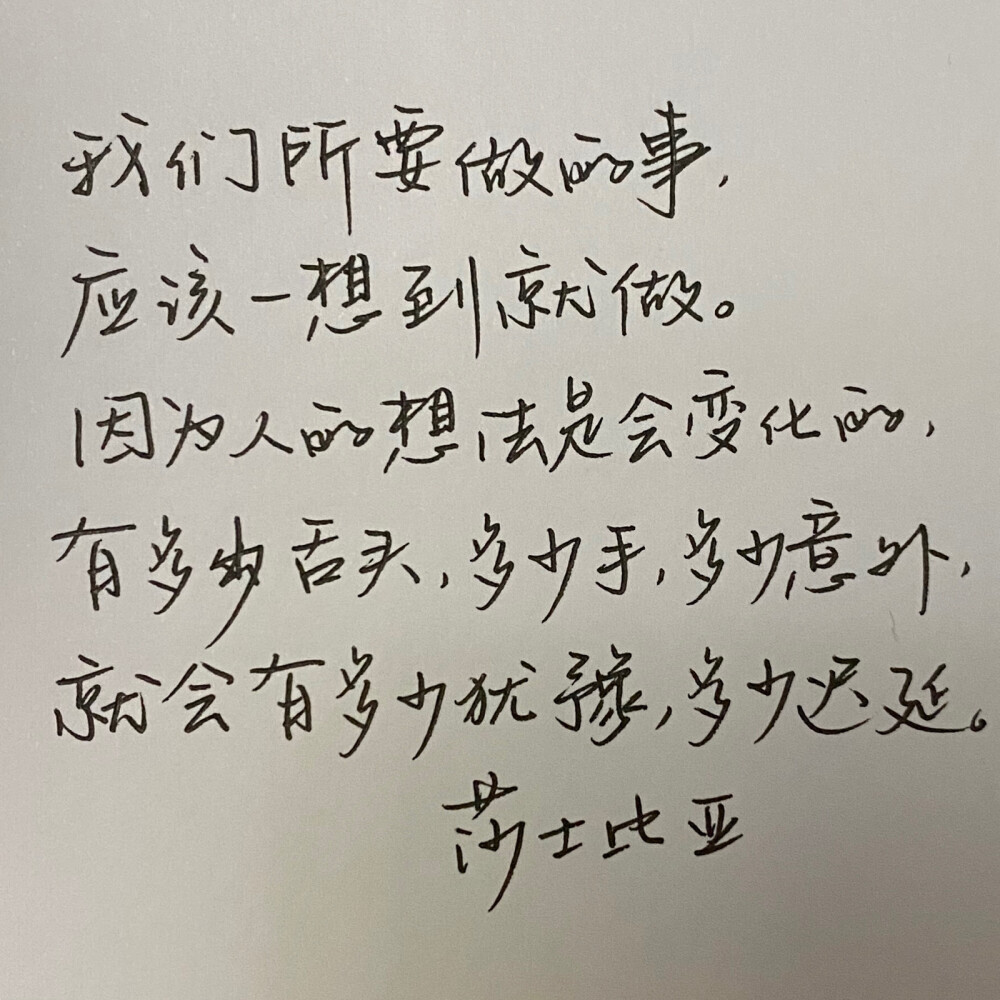 我们所要做的事,
应该一想到就做。
因为人的想法是会变化的,
有多少舌头,多少手,多少意外,
就会有多少犹豫,多少迟延。
莎士比亚